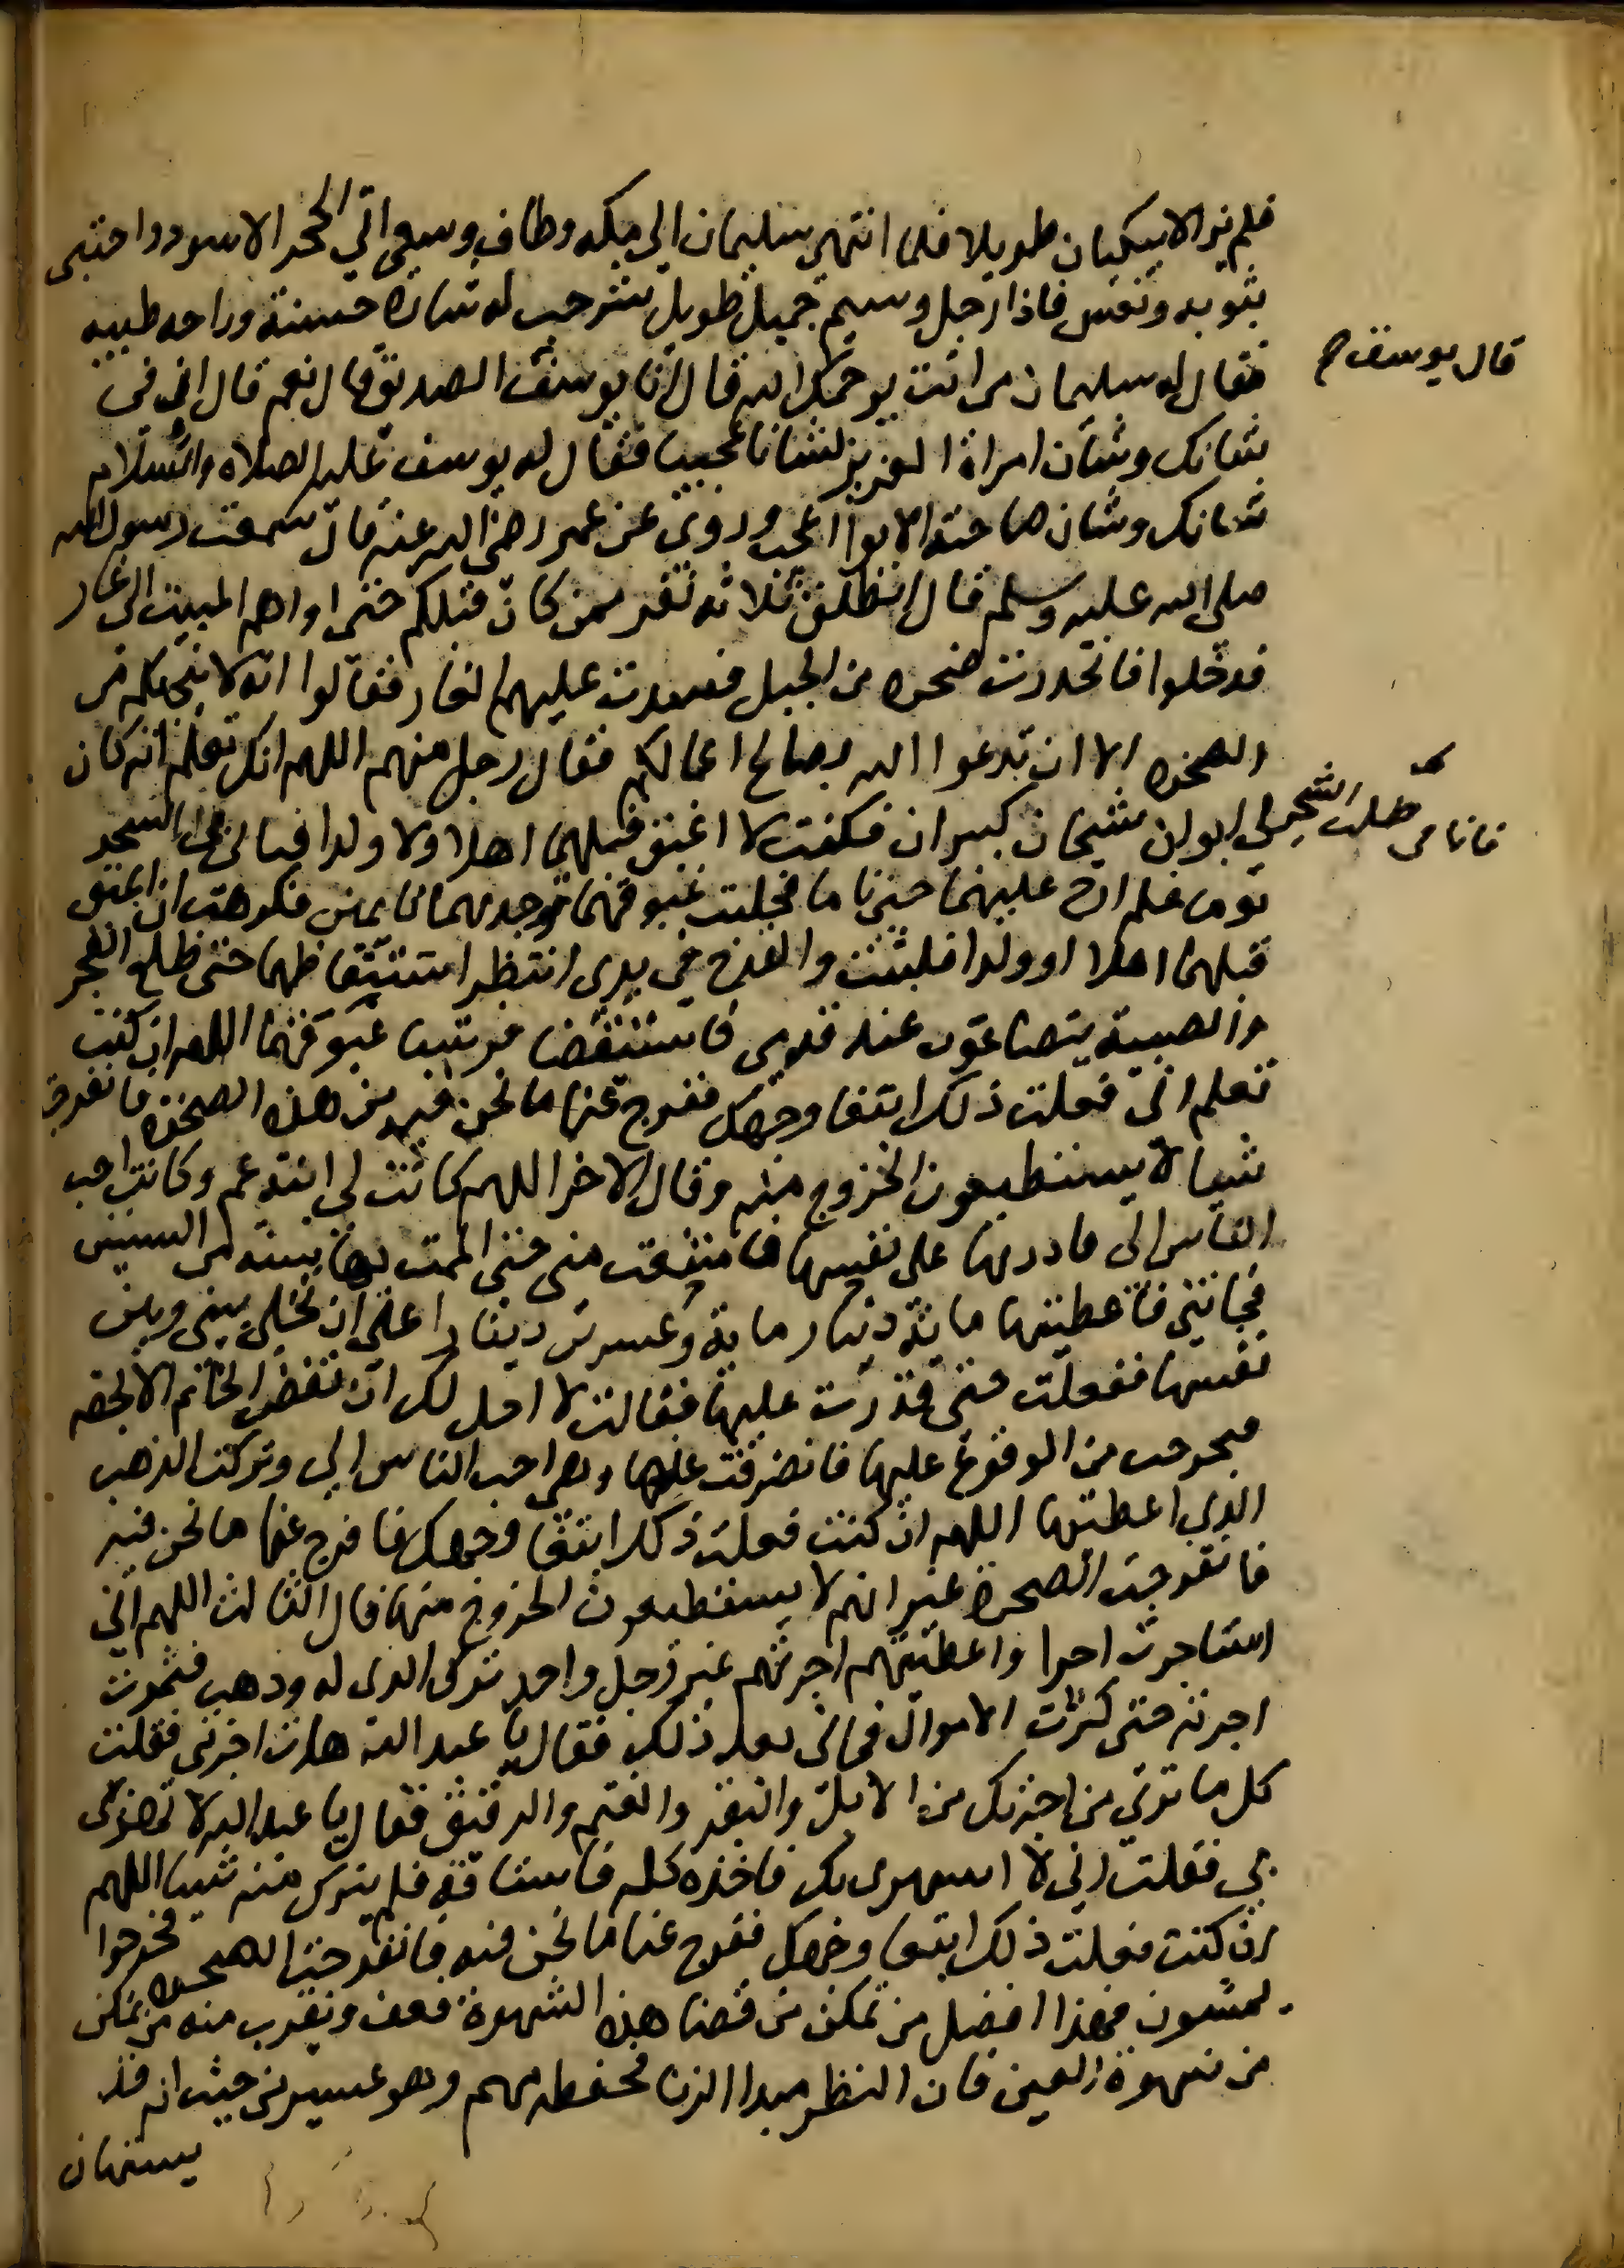 فلم يزالا يبكيان طويلا فلما انتهى سليمان الى مكه وطاف وسعى اتى الحجر الاسود واحتبى
بثوبه ونعس فاذا رجل وسيم جميل طويل شرجب له شارة حسنة وراحه طيبه
فقال له سليمان من انت يرحمك الله قال انا يوسف الصديق قال نعم قال ان في
قال يوسف
شانك وشان امراة العزيز لشانا عجيبا فقال له يوسف عليه الصلاه والسلام
شانك وشان صاحبة الابوا اعجب وروى عن عمر رضي الله عنه قال سمعت رسول الله
صلى الله عليه وسلم قال انطلق ثلاثه نفر ممن كان قبلكم حتى اواهم المبيت الى غار
فدخلوا فانحدرت صخره من الجبل فسدت عليهم الغار فقالوا انه لا ينجيكم من
الصخره الا ان تدعوا الله بصالح اعمالكم فقال رجل منهم اللهم انك تعلم انه كان
لي ابوان شيخان كبيران فكنت لا اغبق قبلهما اهلا ولا ولدا فنا بي طلب الشجر
فانا بي طلب الشجر
يوما فلم ارح عليهما حتى ناما فحلبت غبوقهما فوجدتهما نايمين فكرهت ان اغبق
قبلهما اهلا او ولدا فلبثت والقدح في يدي انتظر استيقاظهما حتى طلع الفجر
والصبية يتضاغون عند قدمي فاستيقضا فشربا غبوقهما اللهم ان كنت
تعلم اني فعلت ذلك ابتغا وجهك ففرج عنا ما نحن فيه من هذه الصخره فانفرجت
شيا لا يستطيعون الخروج منه وقال الاخر اللهم كانت لي ابنة عم وكانت احب
الناس الى فاردتها على نفسها فامتنعت مني حتى المت بها سنه من السنين
فجاتني فاعطيتها ماية دينار ماية وعشرين دينارا على ان تخلي بيني وبين
نفسها ففعلت حتى قدرت عليها فقالت لا احل لك ان تفض الخاتم الا بحقه
فتحرجت من الوقوع عليها فانصرفت عنها وهي احب الناس الي وتركت الذهب
الذي اعطيتها اللهم ان كنت فعلت ذلك ابتغا وجهك فافرج عنا ما نحن فيه
فانفرجت الصخرة غير انهم لا يستطيعون الخروج منها قال الثالث اللهم اني
استاجرت اجرا واعطيتهم اجرتهم غير رجل واحد ترك الذى له وذهب فثمرت
اجرته حتى كثرت الاموال فجاني بعد ذلك فقال يا عبد الله هات اجرتي فقلت
كل ما ترى من اجرتك من الابل والبقر والغنم والرقيق فقال يا عبد الله لا تهزى
بي فقلت اني لا استهزى بك فاخذه كله فاستاقه فلم يترك منه شيا اللهم
ان كنت فعلت ذلك ابتغا وجهك ففرج عنا ما نحن فيه فانفرجت الصخره فخرجوا
يمشون فهذا افضل من تمكن من قضا هذه الشهوة فعف ويقرب منه من تمكن
من شهوة العين فان النظر مبدا الزنا فحفظه مهم وهو عسير من حيث انه قد
يستهان